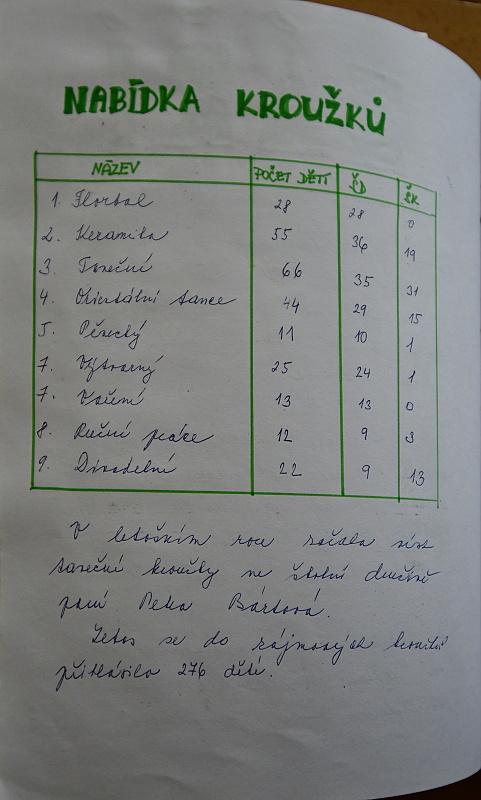 NABÍDKA KROUŽKŮ
NÁZEV POČET DĚTÍ ŠD ŠK
1. Florbal 28 28 0
2. Keramika 55 36 19
3. Taneční 66 35 31
4. Orientální tance 44 29 15
5. Pěvecký 11 10 1
7. Výtvarný 25 24 1
7. Vaření 13 13 0
8. Ruční práce 12 9 3
9. Divadelní 22 9 13
V letošním roce začala vést
taneční kroužky ve školní družině
paní Petra Bártová.
Letos se do zájmových kroužků
přihlásilo 276 dětí.